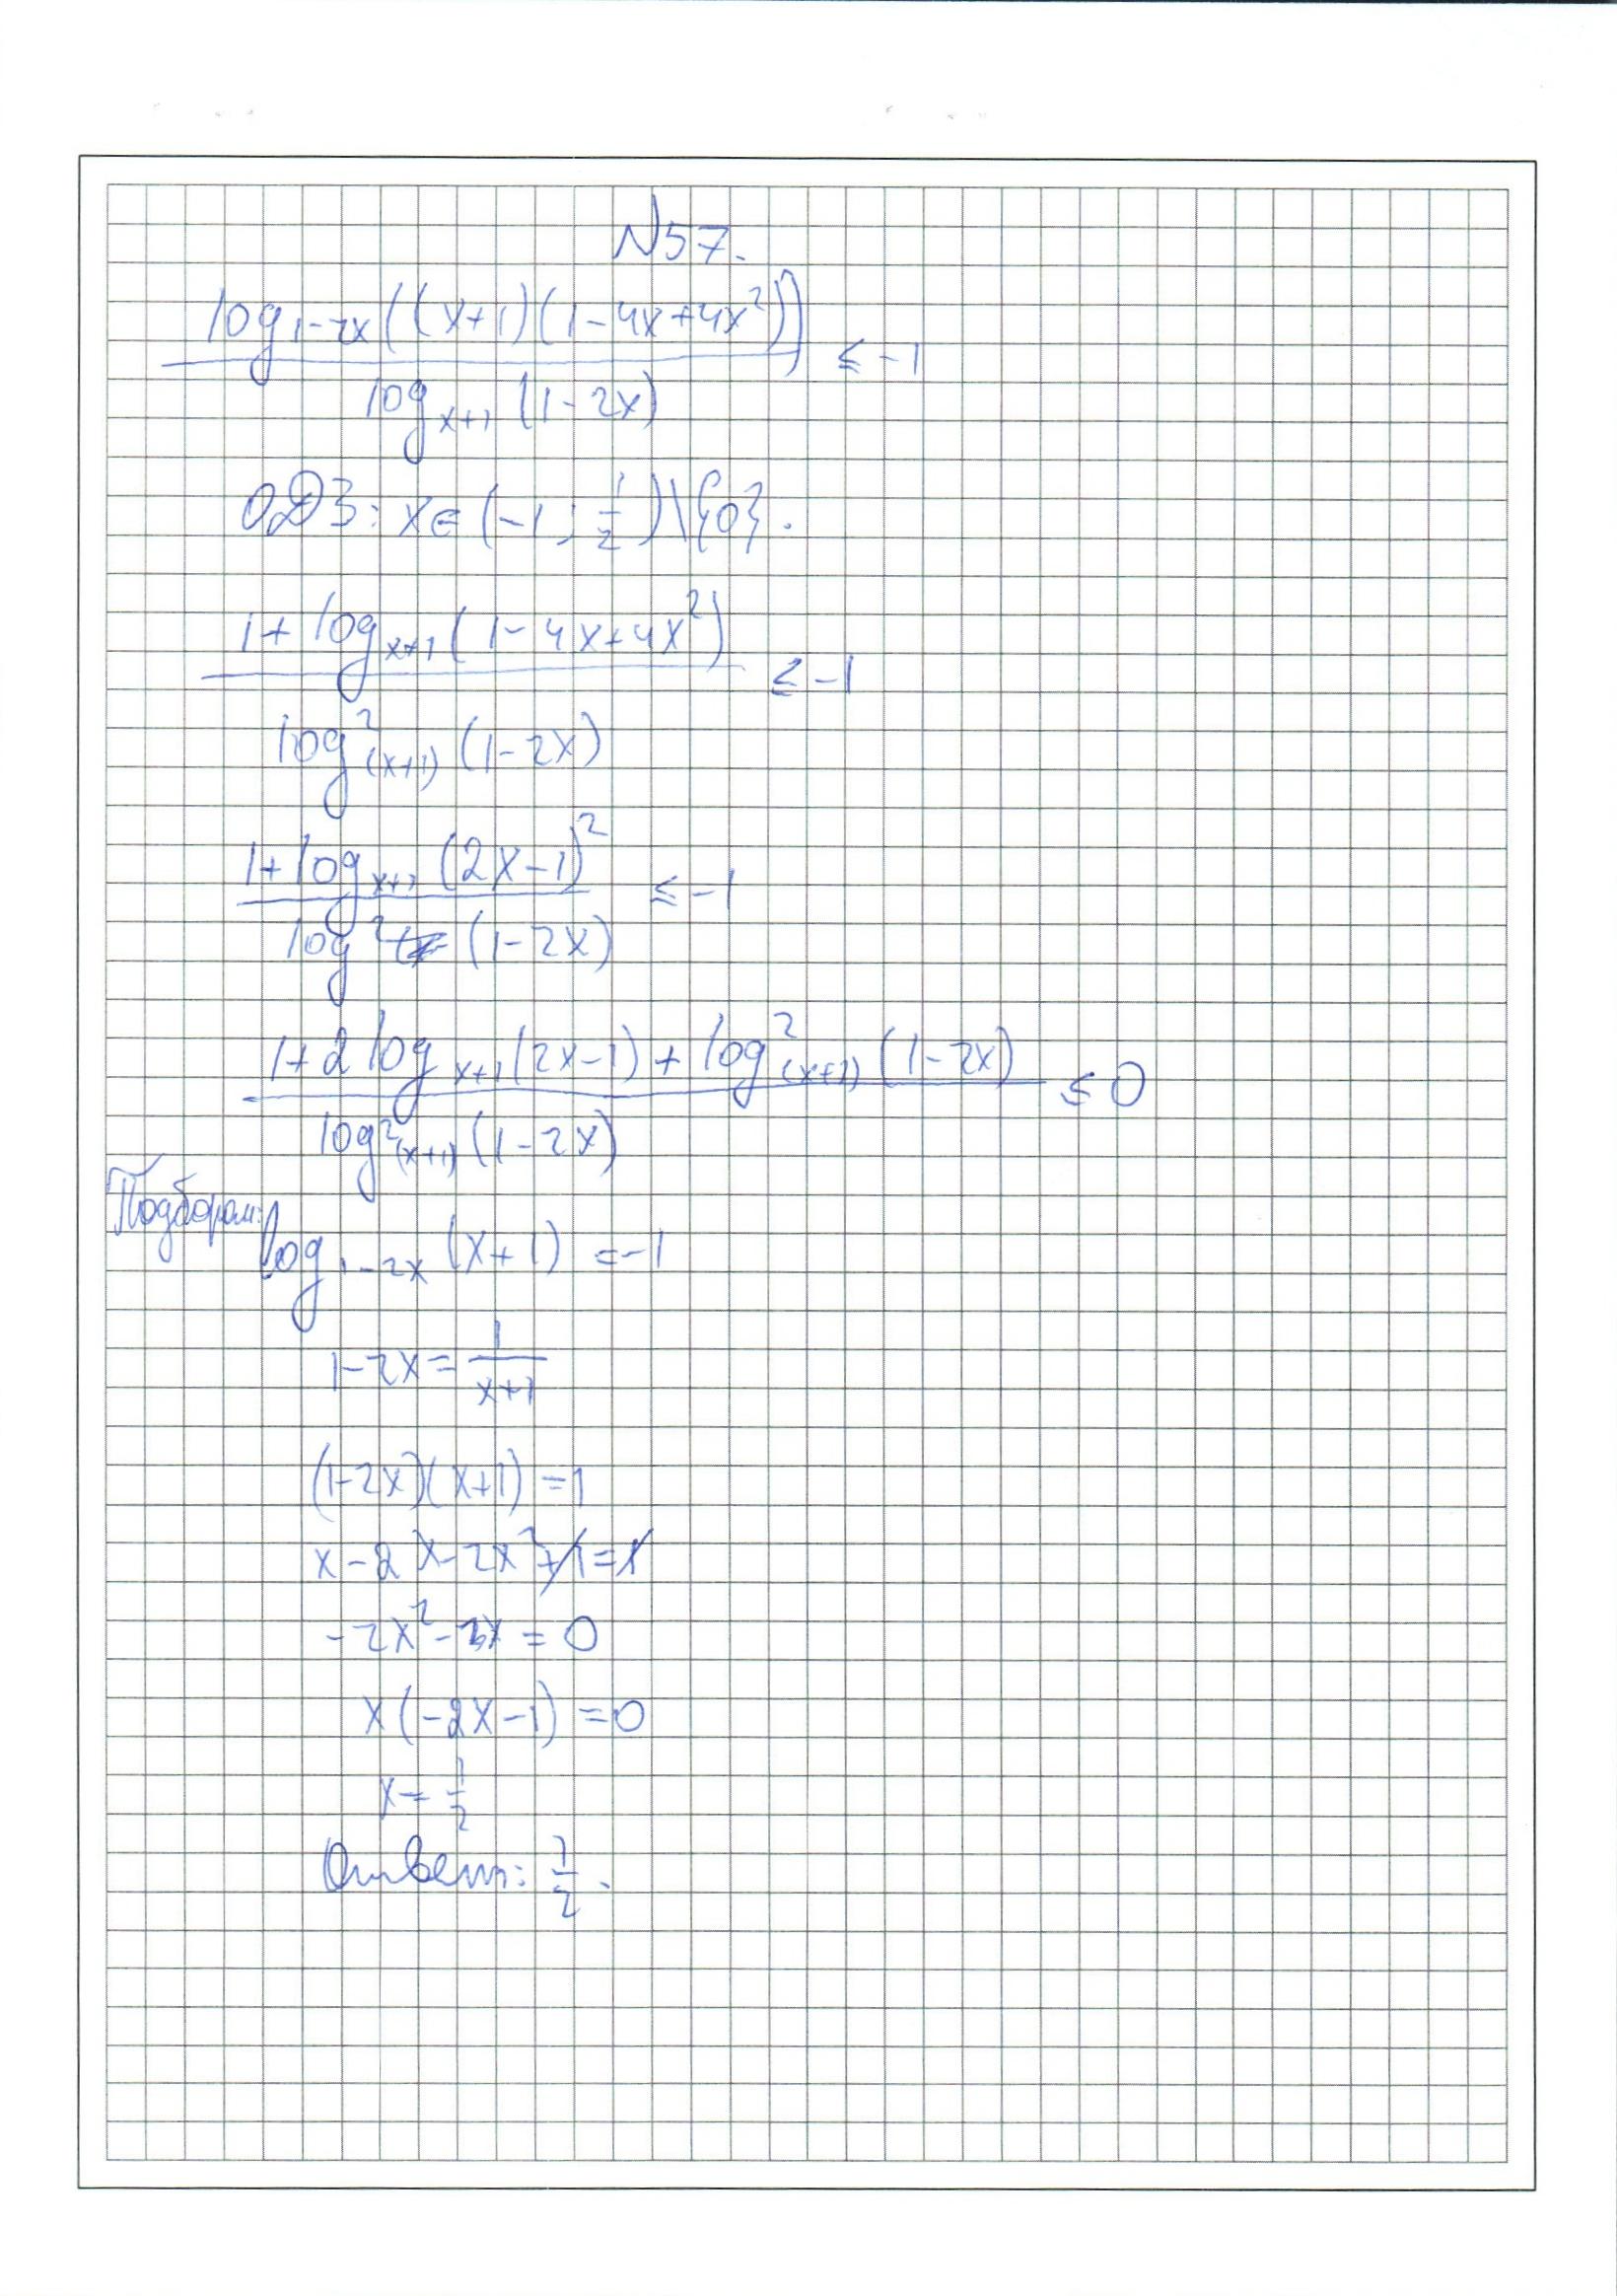 N57.
log₁₋₂ₓ((x+1)(1-4x+4x²)) / logₓ₊₁(1-2x) ≤ -1
ОДЗ: x∈(-1; 1/2)\{0}.
1+logₓ₊₁(1-4x+4x²) / log²₍ₓ₊₁₎(1-2x) ≤ -1
1+logₓ₊₁(2x-1)² / log²(1-2x) ≤ -1
1+2logₓ₊₁(2x-1)+log²₍ₓ₊₁₎(1-2x) / log²₍ₓ₊₁₎(1-2x) ≤ 0
Подбором:
log₁₋₂ₓ(x+1) = -1
1-2x = 1/(x+1)
(1-2x)(x+1) = 1
x-2x-2x²+1=1
-2x²-x = 0
x(-2x-1) = 0
x = 1/2
Ответ: 1/2.